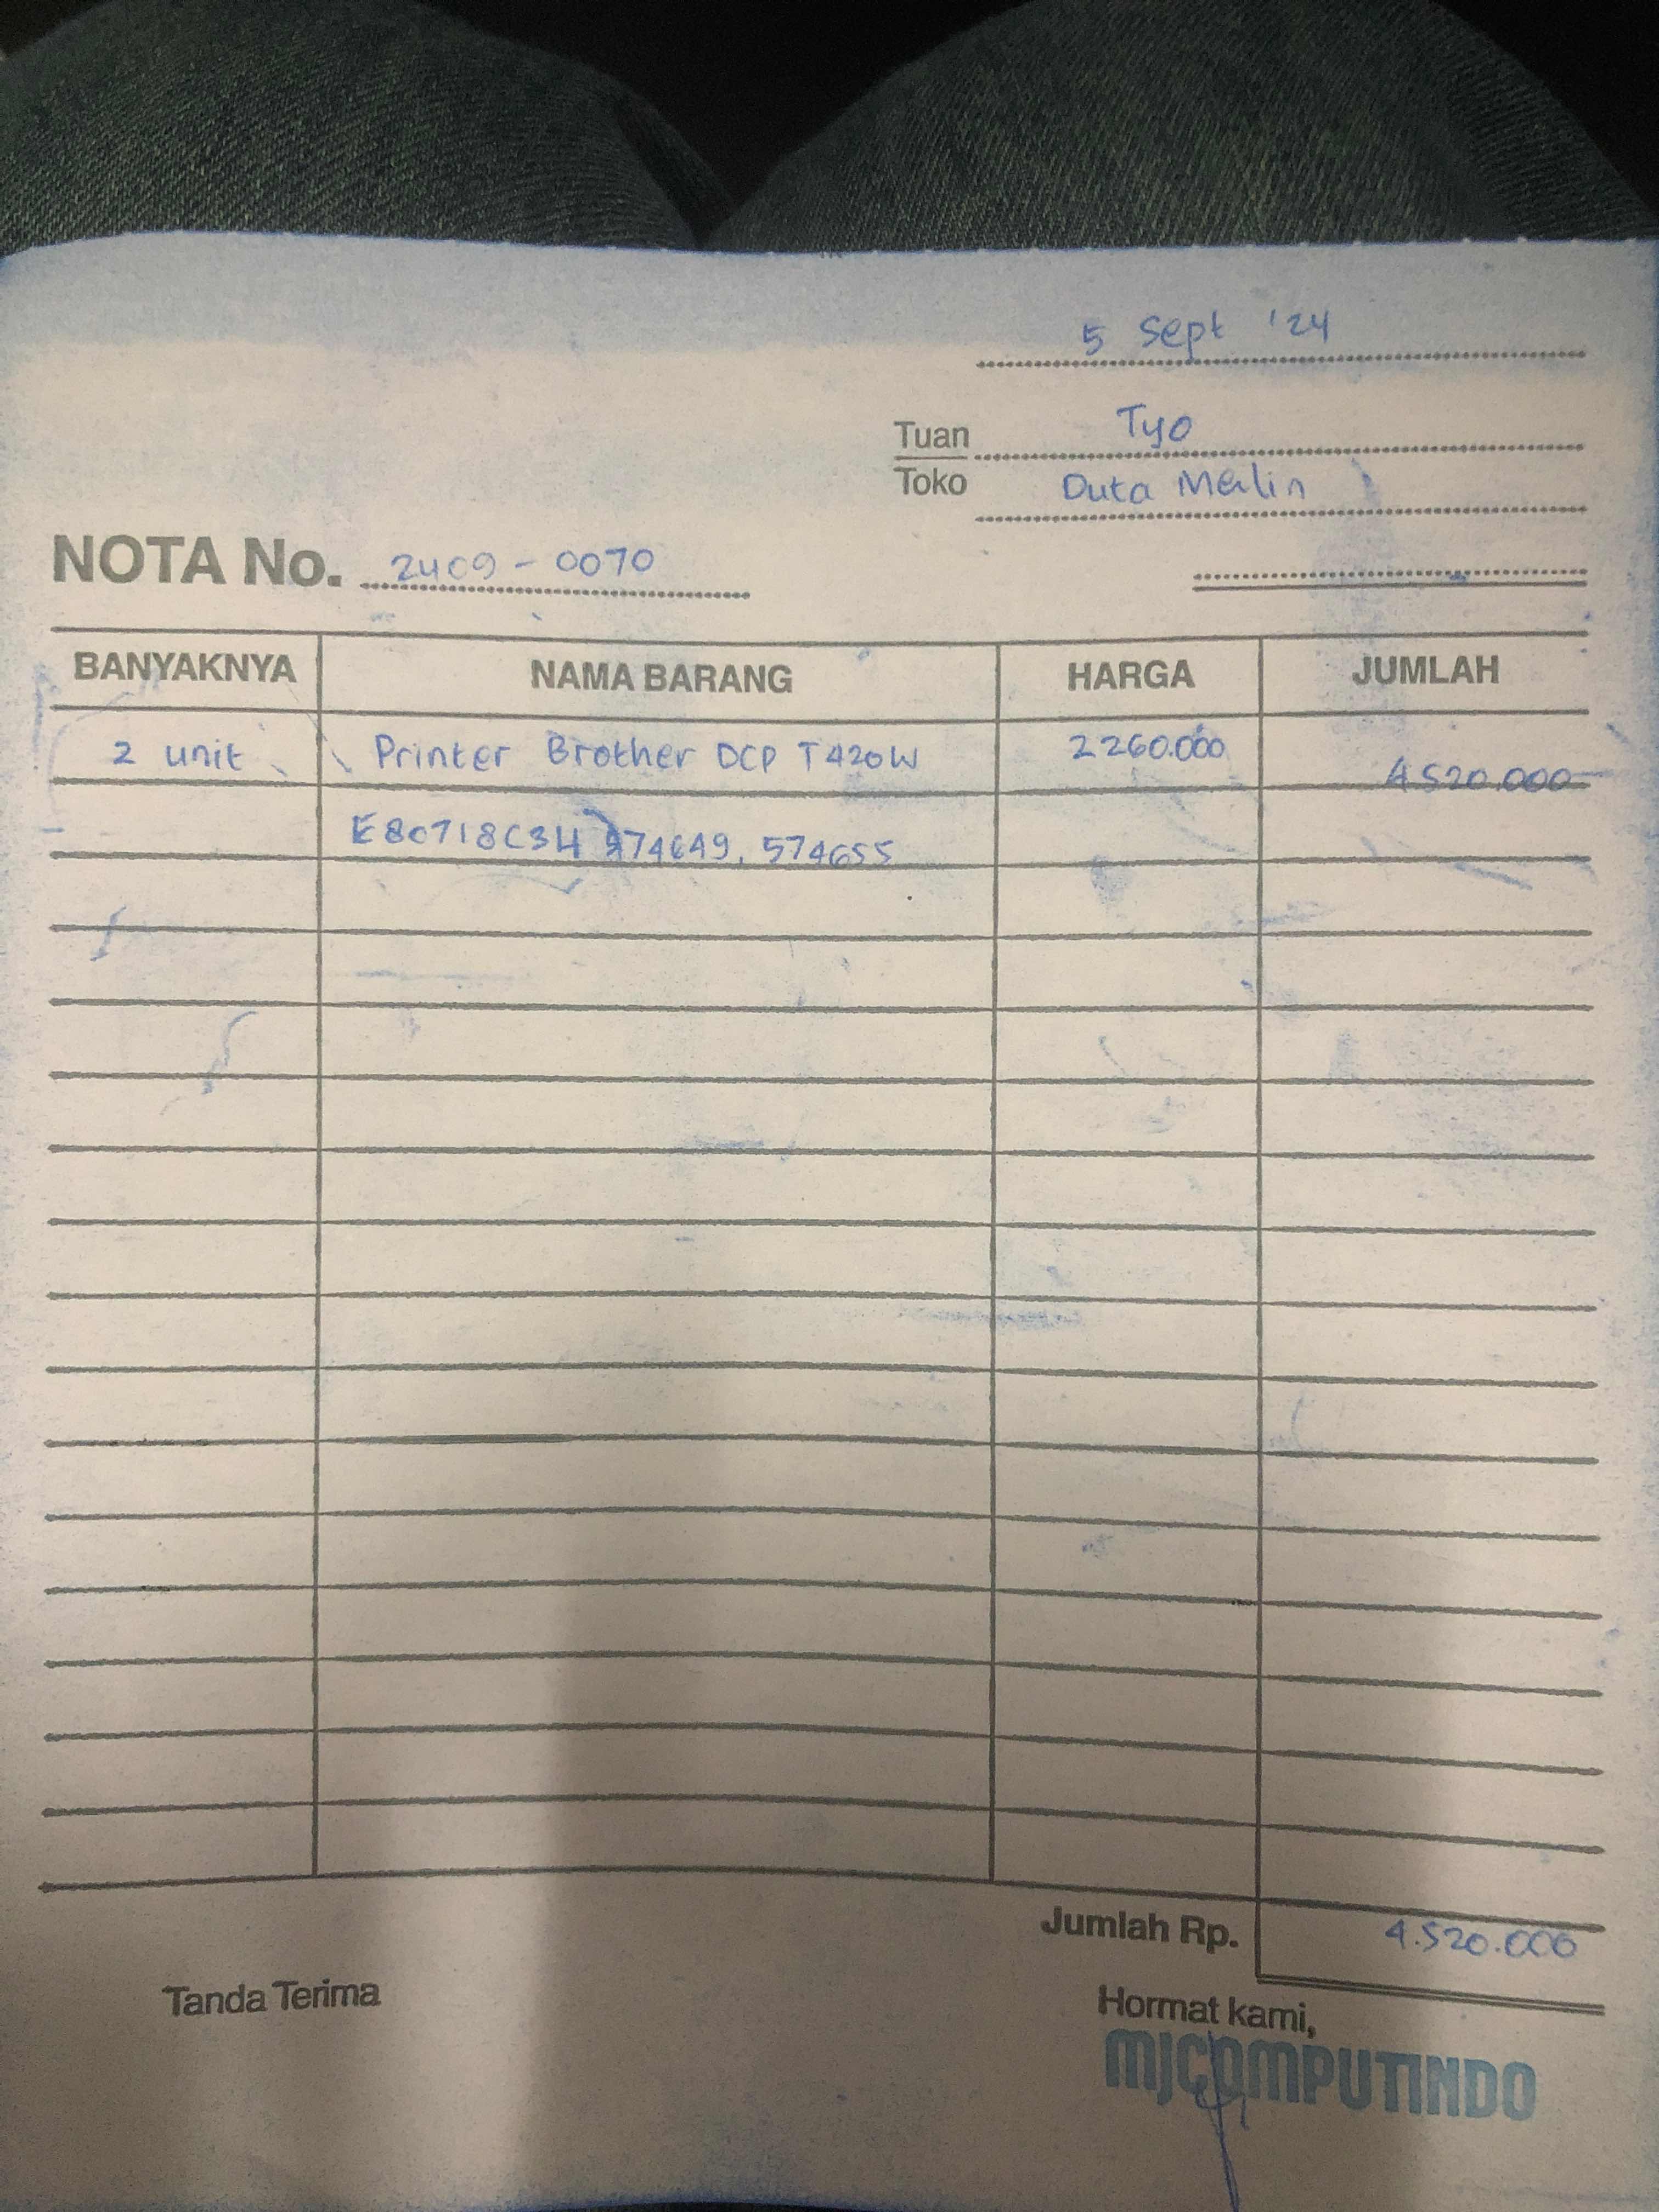 5 Sept '24
Tuan Tyo
Toko Duta Merlin
NOTA No. 2409-0070
BANYAKNYA NAMA BARANG HARGA JUMLAH
2 unit Printer Brother DCP T420W 2260.000 4.520.000
E80718C3H 574649, 574655
Jumlah Rp. 4.520.000
Tanda Terima Hormat kami,
MJCOMPUTINDO